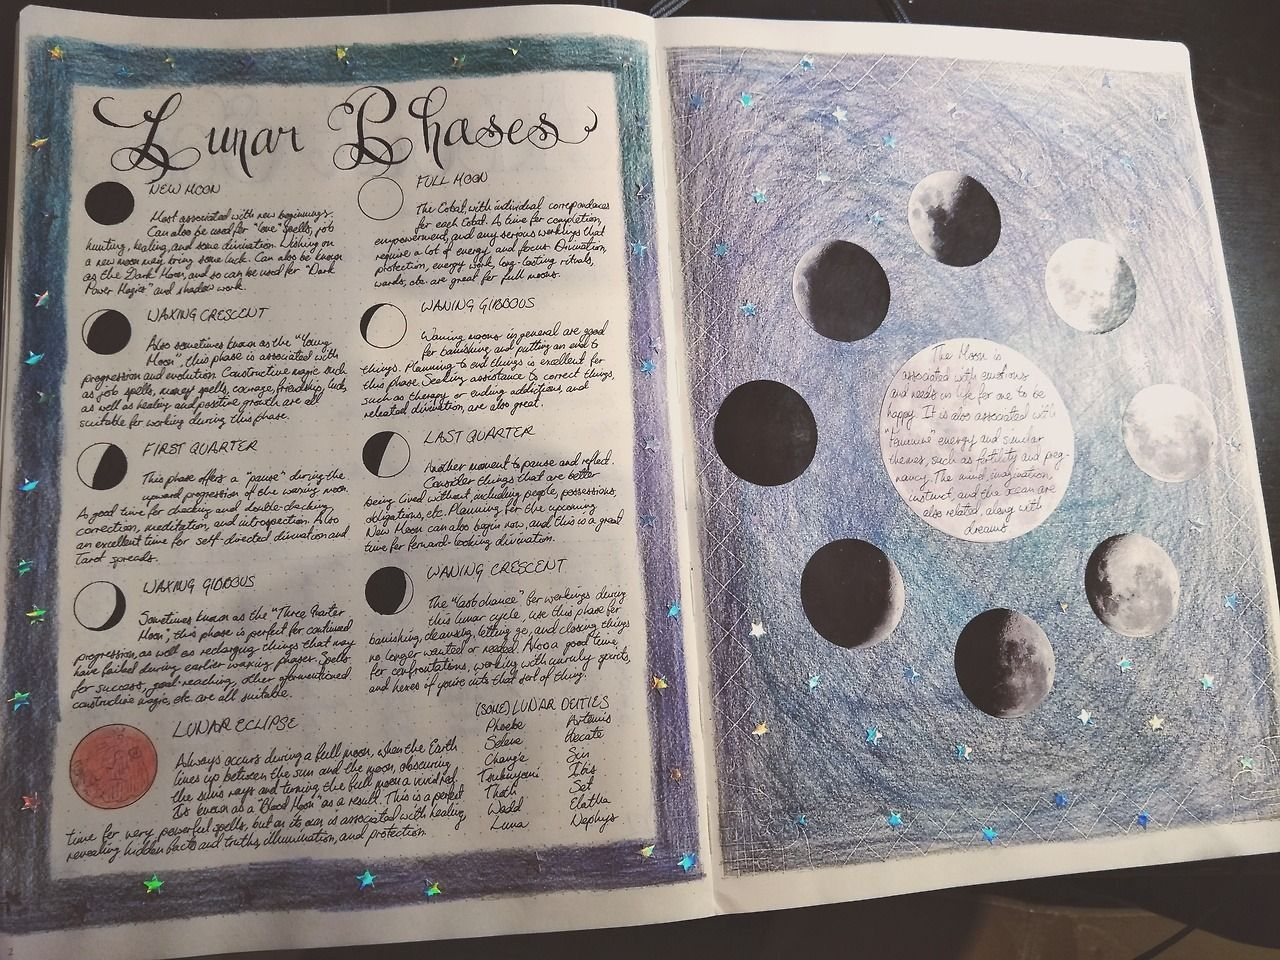 Lunar Phases
NEW MOON
Most associated with new beginnings.
Can also be used for "love" spells, job
hunting, healing, and some divination. Wishing on
a new moon may bring some luck. Can also be known
as the "Dark" Moon, and so can be used for "Dark
Power Magics" and shadow work.
WAXING CRESCENT
Also sometimes known as the "Young
Moon", this phase is associated with
progression and evolution. Constructive magic such
as job spells, money spells, courage, friendship, luck,
as well as healing and positive growth are all
suitable for working during this phase.
FIRST QUARTER
This phase offers a "pause" during the
upward progression of the waxing moon.
A good time for checking and double-checking,
correction, meditation, and introspection. Also
an excellent time for self-directed divination and
Tarot spreads.
WAXING GIBBOUS
Sometimes known as the "Three Quarter
Moon", this phase is perfect for continued
progression, as well as recharging things that may
have failed during earlier waxing phases. Spells
for success, goal-reaching, other aforementioned
constructive magic, etc. are all suitable.
LUNAR ECLIPSE
Always occurs during a full moon, when the Earth
lines up between the sun and the moon, obscuring
the sun's rays and turning the full moon a vivid red.
Is known as a "Blood Moon" as a result. This is a perfect
time for very powerful spells, but on its own is associated with healing,
revealing hidden facts and truths, illumination, and protection.
FULL MOON
The Esbat, with individual correspondances
for each Esbat. A time for completion,
empowerment, and any serious workings that
require a lot of energy and focus. Divination,
protection, energy work, long-lasting rituals,
wards, etc. are great for full moons.
WANING GIBBOUS
Waning moons in general are good
for banishing and putting an end to
things. Planning to end things is excellent for
this phase. Seeking assistance to correct things,
such as therapy or ending addictions, and
related divination, are also great.
LAST QUARTER
Another moment to pause and reflect.
Consider things that are better
being lived without, including people, possessions,
obligations, etc. Planning for the upcoming
New Moon can also begin now, and this is a great
time for forward-looking divination.
WANING CRESCENT
The "last chance" for workings during
this lunar cycle, use this phase for
banishing, cleansing, letting go, and closing things
no longer wanted or needed. Also a good time
for confrontations, working with unruly spirits,
and hexes if you're into that sort of thing.
(SOME) LUNAR DEITIES
Phoebe Artemis
Selene Hecate
Chang'e Sin
Tsukuyomi Ibis
Thoth Set
Wadd Elatha
Luna Nephys
The Moon is
associated with emotions
and needs in life for one to be
happy. It is also associated with
"feminine" energy and similar
themes, such as fertility and preg-
nancy. The mind, imagination,
instinct, and the ocean are
also related, along with
dreams.
2